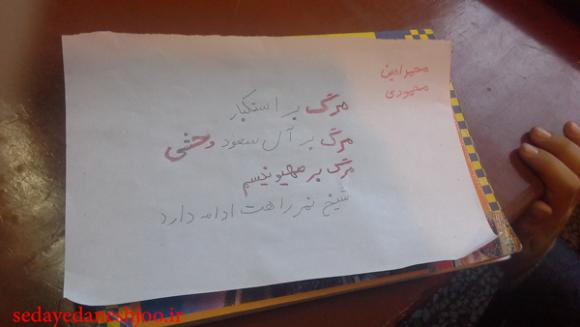 محمد امین
محمودی
مرگ بر استکبار
مرگ بر آل سعود وحشی
مرگ بر صهیونیسم
شیخ نمر راهت ادامه دارد
sedayedaneshjoo.ir